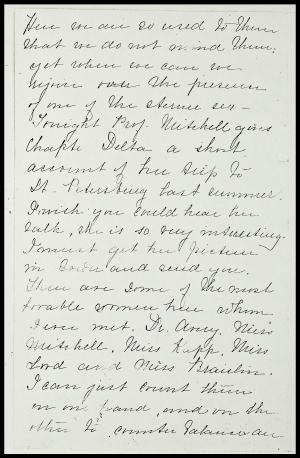 Here we are so used to them
that we do not mind them;
yet when we can we
rejoice over the presence
of one of the sterner sex -
Tonight Prof. Mitchell gives
Chapter Delta a short
account of her trip to
St. Petersburg last summer.
I wish you could hear her
talk, she is so very interesting.
I must get her picture
in town and send you.
There are some of the most
lovable women here whom
I ever met. Dr. Avery, Miss
Mitchell, Miss Kapp, Miss
Lord and Miss Braislin.
I can just count them
on one hand, and on the
other to counter balance are